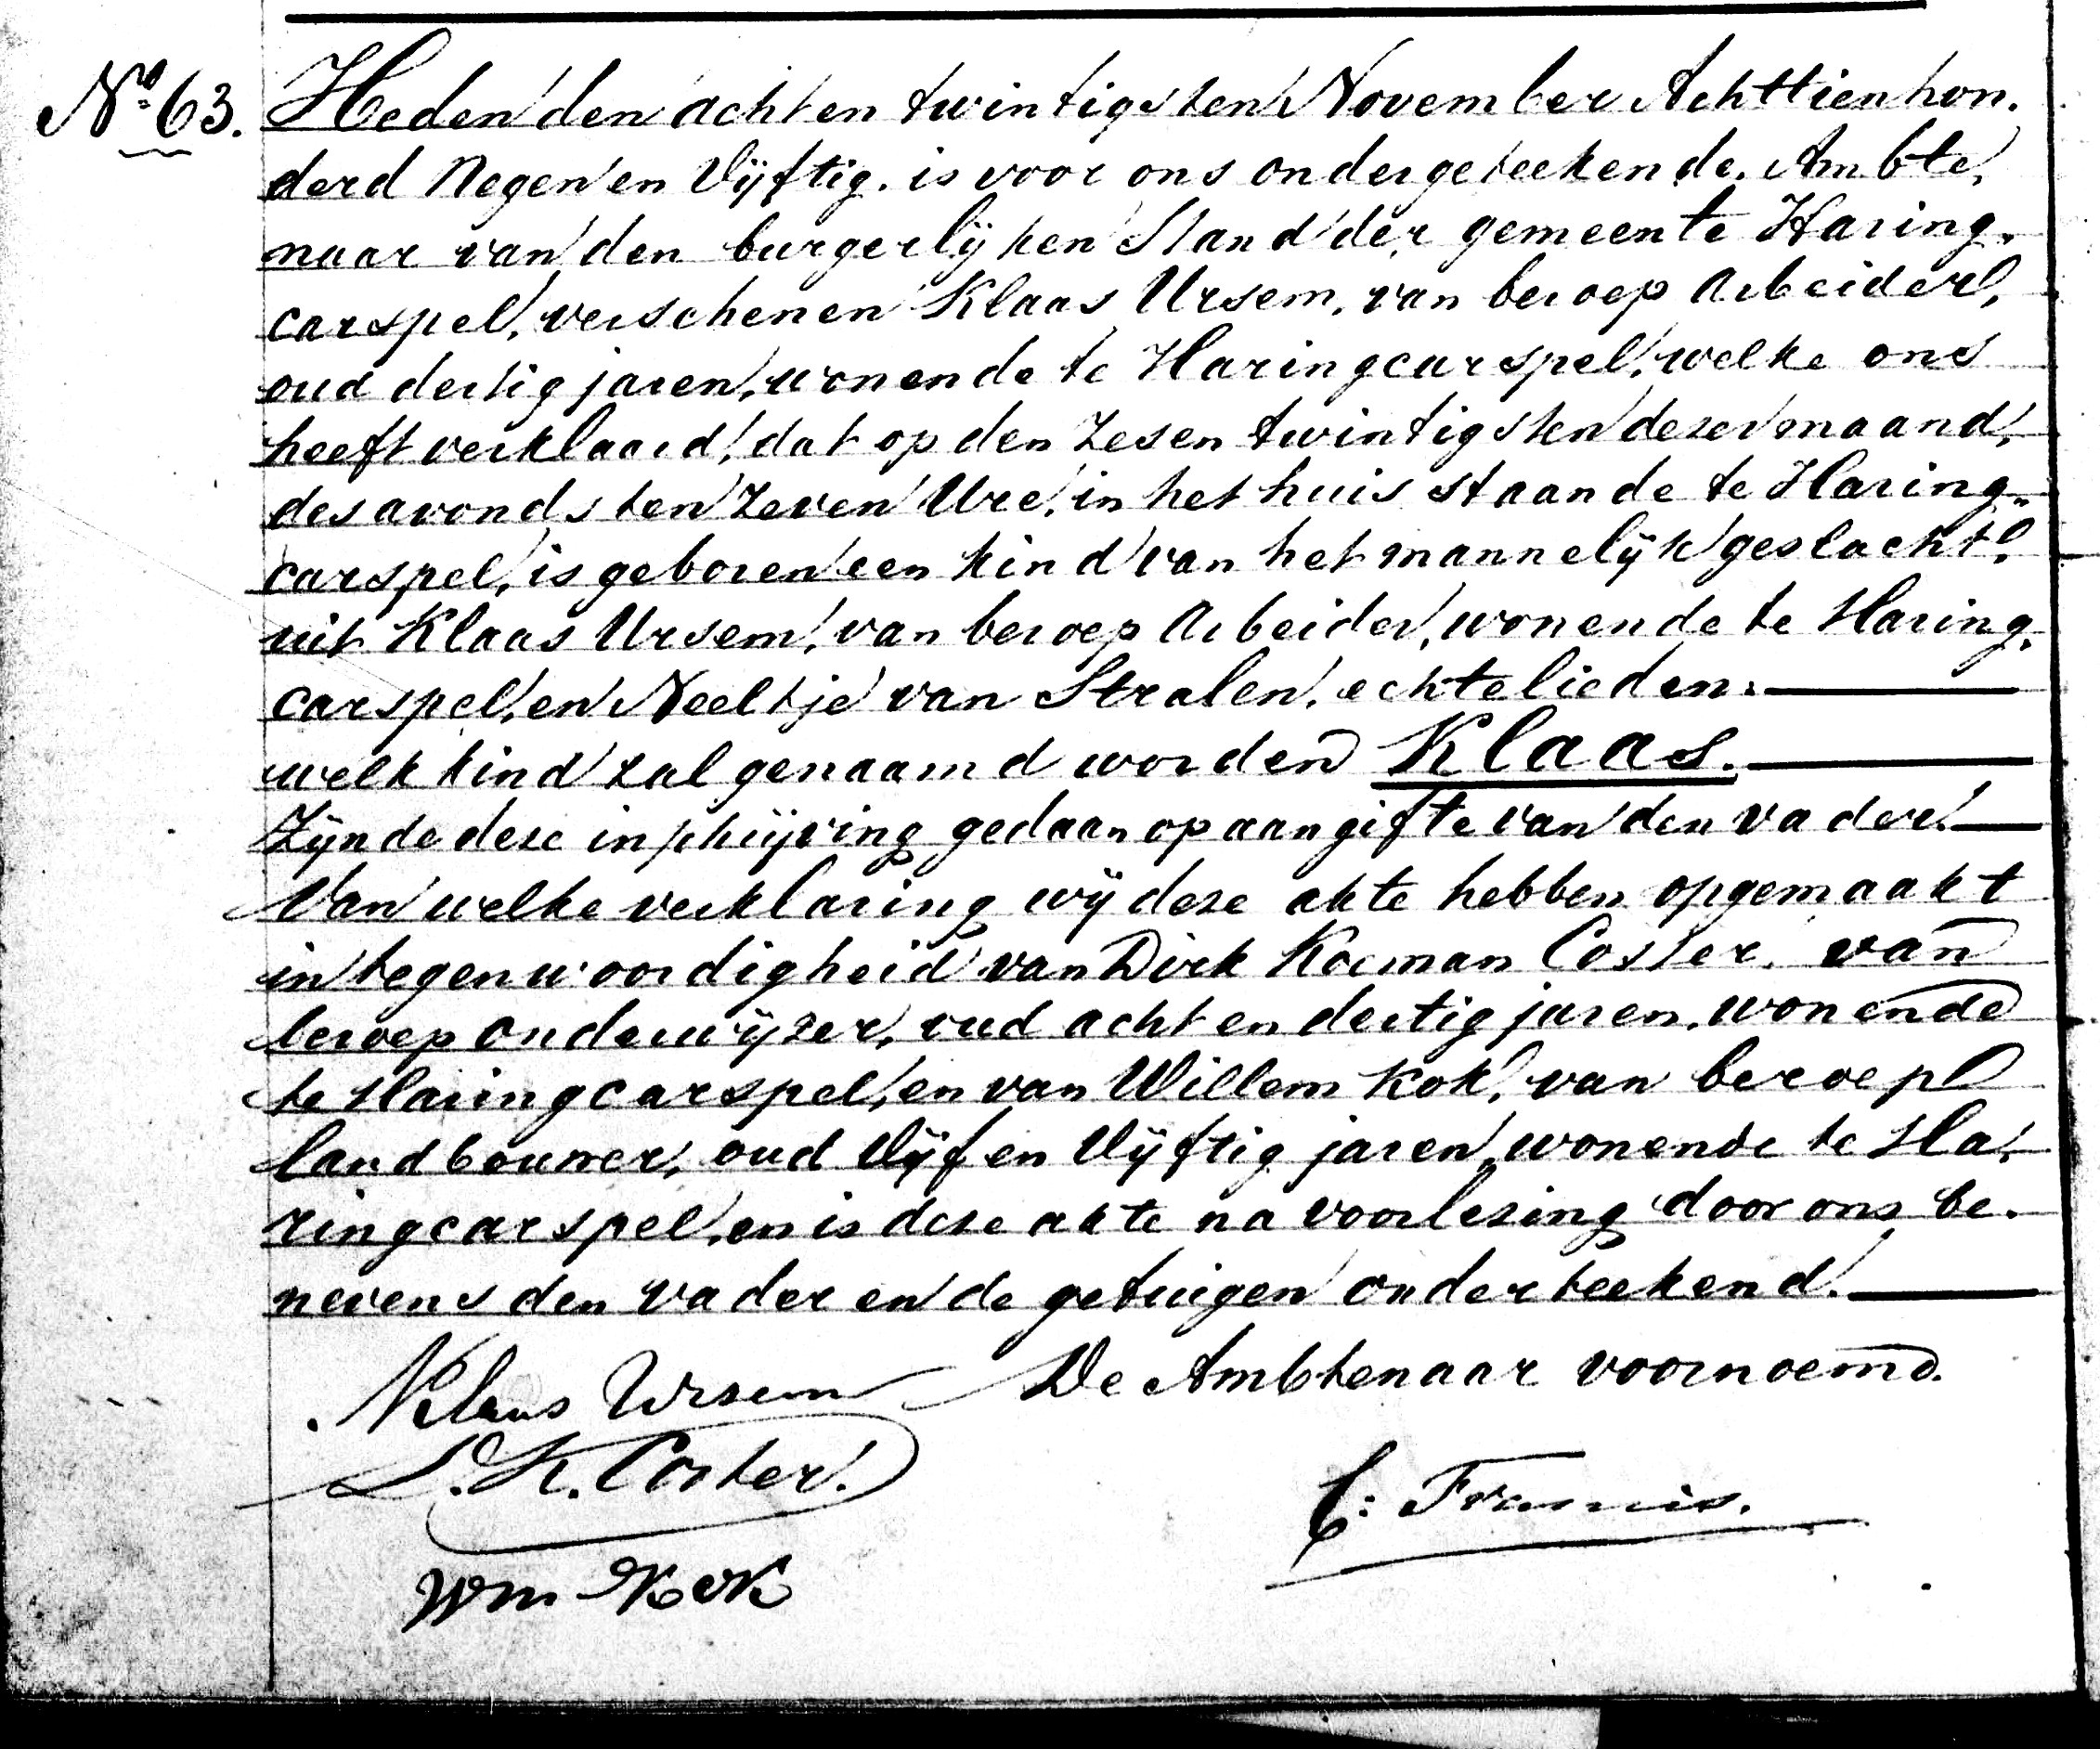 No. 63. Heden den acht en twintigsten November Achttienhon.
derd Negen en Vijftig. is voor ons ondergeteekende. Ambte,
naar van den burgerlijken Stand der gemeente Haring„
carspel, verschenen Klaas Ursem, van beroep Arbeider,
oud dertig jaren, wonende te Haringcarspel, welke ons
heeft verklaard, dat op den Zes en twintigsten dezer maand,
des avonds ten Zeven Ure, in het huis staande te Haring„
carspel, is geboren een kind van het mannelijk geslacht,
uit Klaas Ursem, van beroep Arbeider, wonende te Haring,
carspel, en Neeltje van Stralen, echtelieden.
welk kind zal genaamd worden Klaas.
Zijnde deze inschrijving gedaan op aangifte van den vader.
Van welke verklaring wij deze akte hebben opgemaakt
in tegenwoordigheid van Dirk Koeman Coster. van
beroep onderwijzer, oud acht en dertig jaren, wonende
te Haringcarspel, en van Willem Kok, van beroep
landbouwer, oud Vijf en Vijftig jaren, wonende te Ha,
ringcarspel, en is deze akte na voorlezing door ons be.
nevens den vader en de getuigen onderteekend.
Klaas Ursem De Ambtenaar voornoemd.
D. K. Coster.
C: Francis.
Wm Kok